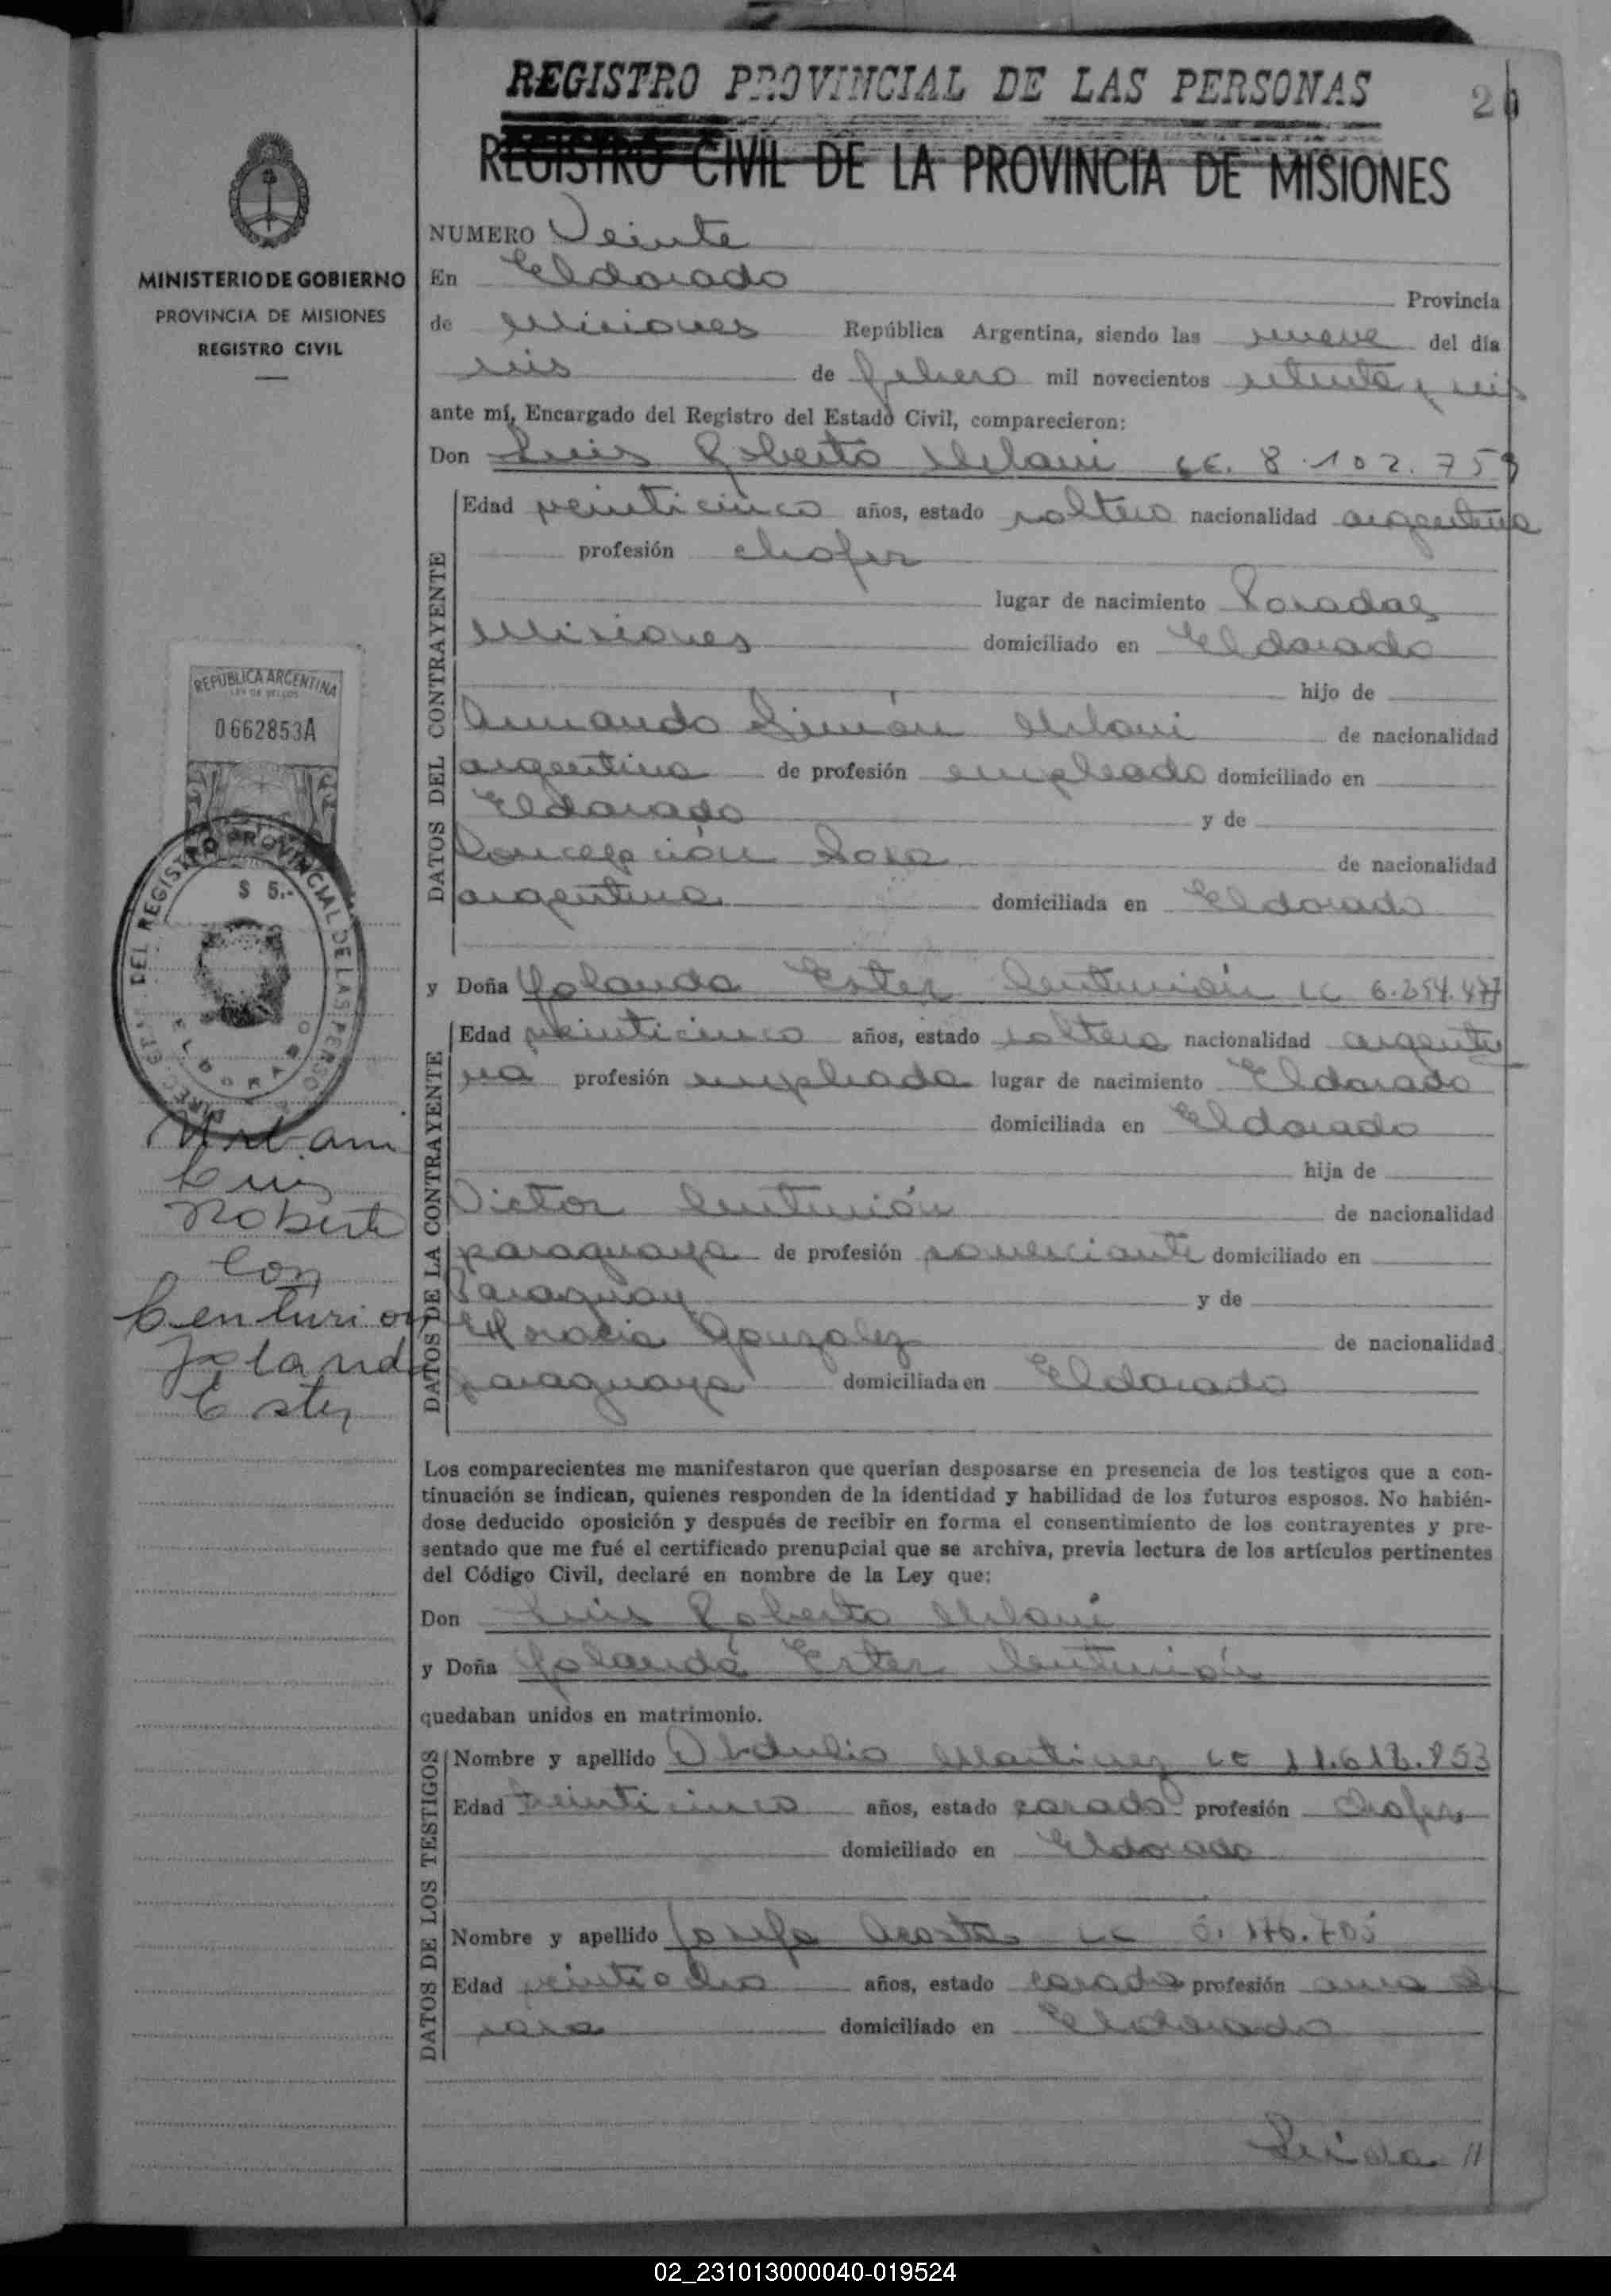 REGISTRO PROVINCIAL DE LAS PERSONAS
REGISTRO CIVIL DE LA PROVINCIA DE MISIONES
MINISTERIO DE GOBIERNO
PROVINCIA DE MISIONES
REGISTRO CIVIL
REPUBLICA ARGENTINA
0662853A
$ 5.-
DEL REGISTRO PROVINCIAL DE LAS PERSO
ELDORADO
Luis
Roberto
Con
Centurion
Yolanda
Ester
NUMERO Veinte
En Eldorado Provincia
de Misiones República Argentina, siendo las nueve del día
seis de febrero mil novecientos setenta y seis
ante mí, Encargado del Registro del Estado Civil, comparecieron:
Don Luis Roberto 8.102.759
DATOS DEL CONTRAYENTE
Edad veinticinco años, estado soltero nacionalidad argentina
profesión chofer
lugar de nacimiento Posadas
Misiones domiciliado en Eldorado
hijo de
Armando Simón de nacionalidad
argentina de profesión empleado domiciliado en
Eldorado y de
Concepción Sosa de nacionalidad
argentina domiciliada en Eldorado
y Doña Yolanda Ester Centurión LC 6.254.477
DATOS DE LA CONTRAYENTE
Edad veinticinco años, estado soltera nacionalidad argenti
na profesión empleada lugar de nacimiento Eldorado
domiciliada en Eldorado
hija de
Victor Centurión de nacionalidad
paraguaya de profesión comerciante domiciliado en
Paraguay y de
Gonzalez de nacionalidad
paraguaya domiciliada en Eldorado
Los comparecientes me manifestaron que querían desposarse en presencia de los testigos que a con-
tinuación se indican, quienes responden de la identidad y habilidad de los futuros esposos. No habién-
dose deducido oposición y después de recibir en forma el consentimiento de los contrayentes y pre-
sentado que me fué el certificado prenupcial que se archiva, previa lectura de los artículos pertinentes
del Código Civil, declaré en nombre de la Ley que:
Don Luis Roberto
y Doña Yolanda Ester Centurión
quedaban unidos en matrimonio.
DATOS DE LOS TESTIGOS
Nombre y apellido Obdulio Martinez
Edad veinticinco años, estado casado profesión chofer
domiciliado en Eldorado
Nombre y apellido Josefa Acosta LC
Edad veintiocho años, estado casada profesión ama de
casa domiciliado en Eldorado
Leída //
02_231013000040-019524